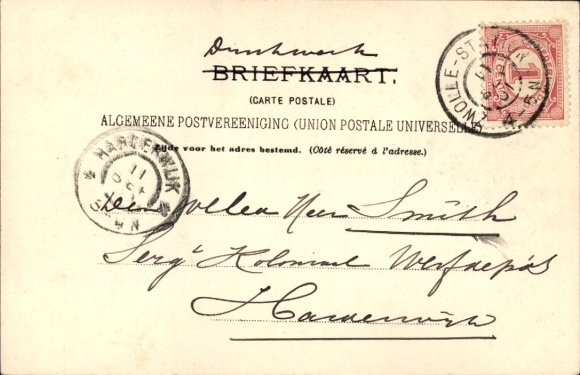 Drukwerk
BRIEFKAART.
(CARTE POSTALE)
ALGEMEENE POSTVEREENIGING (UNION POSTALE UNIVERSELLE)
Zijde voor het adres bestemd. (Côté réservé à l'adresse.)
ZWOLLE-STATION
1
HARDERWIJK
11
Den Heer Smith
Serg^t Koloniaal Werfdepôt
Harderwijk